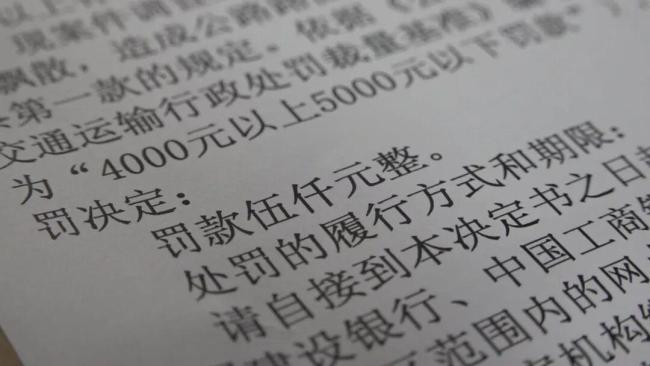 现案件调
飘散，造成公路路
第一款的规定。依据《
交通运输行政处罚裁量基准》
为“4000元以上5000元以下罚款”
罚决定：
罚款伍仟元整。
处罚的履行方式和期限：
请自接到本决定书之日起
建设银行、中国工商银
范围内的网
机构